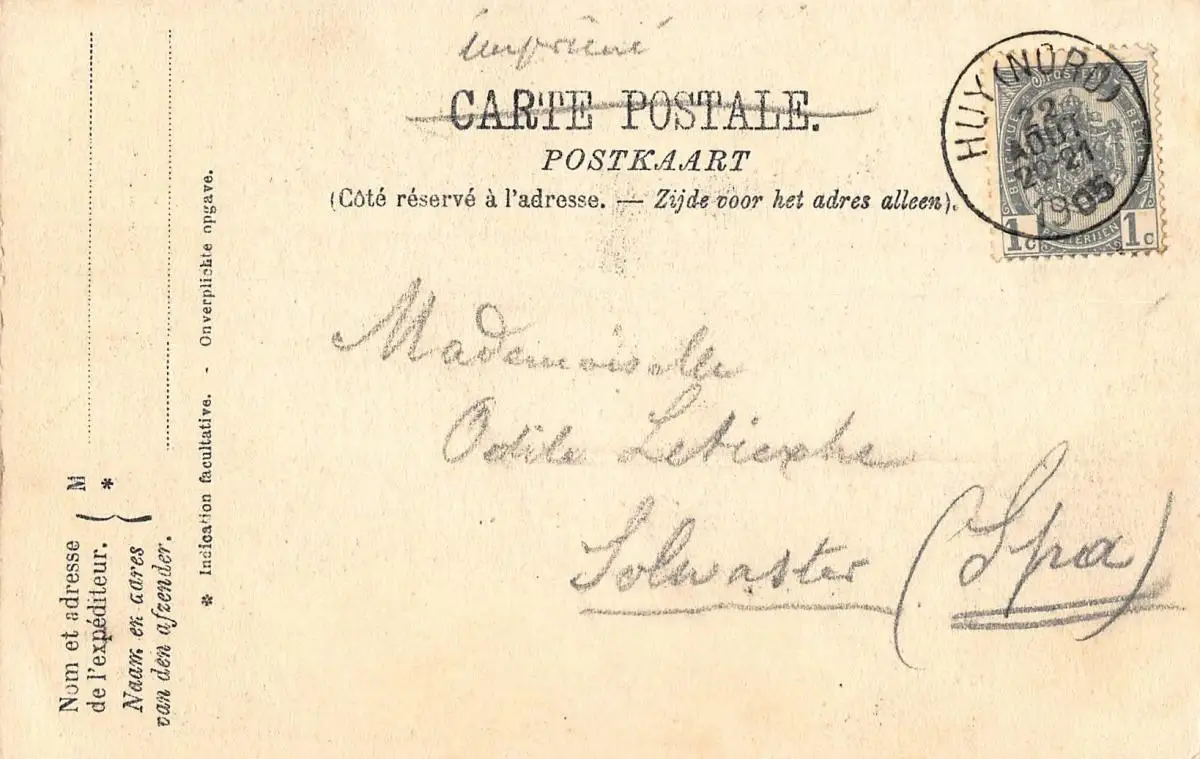 imprimé
CARTE POSTALE.
POSTKAART
(Côté réservé à l'adresse. — Zijde voor het adres alleen).
HUY (NORD)
22
AOUT
20-21
1905
1c 1c
Mademoiselle
Odile
Solwaster (Spa)
* Indication facultative. - Onverplichte opgave.
Nom et adresse
de l'expéditeur.
Naam en adres
van den afzender.
M
*